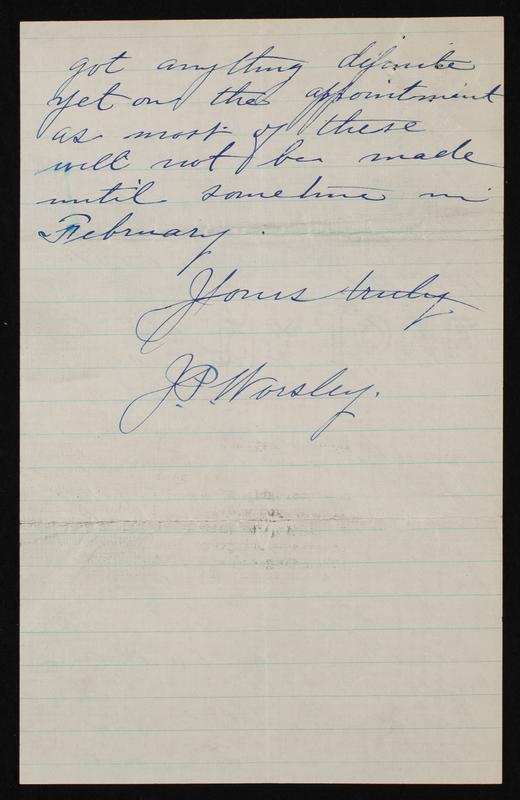 got anything definite
yet on the appointment
as most of these
will not be made
until sometime in
February.
Yours truly
J.P. Worsley.